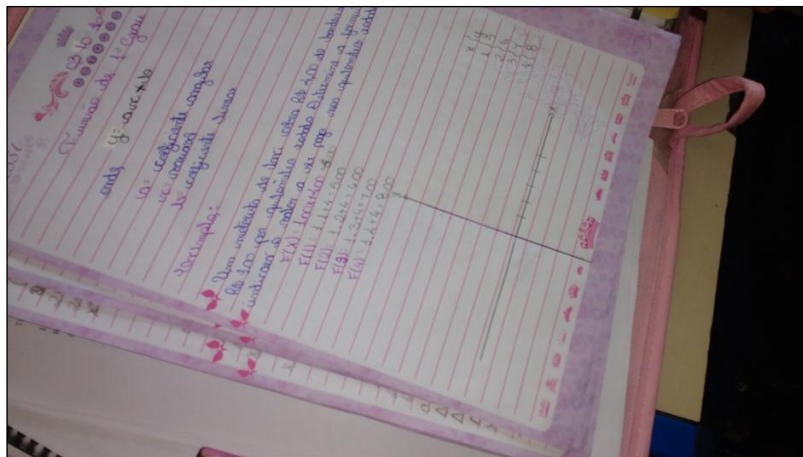 03 10
Função de 1º Grau
onde y = ax + b
a = coeficiente angular
x = variavel
b = coeficiente linear
Exemplo:
Um motorista de taxi cobra R$ 4,00 de bandeira
R$ 1,00 por quilômetro rodado Determine a formula
indicam o valor a ser pago nos quilometros rodad
F(X) = 1,00x + 4,00
F(1) = 1.1+4 = 5,00
F(2) = 1.2+4 = 6,00
F(3) = 1.3+4 = 7,00
F(4) = 1.4+4 = 8,00
x | y
1 | 5
2 | 6
3 | 7
4 | 8